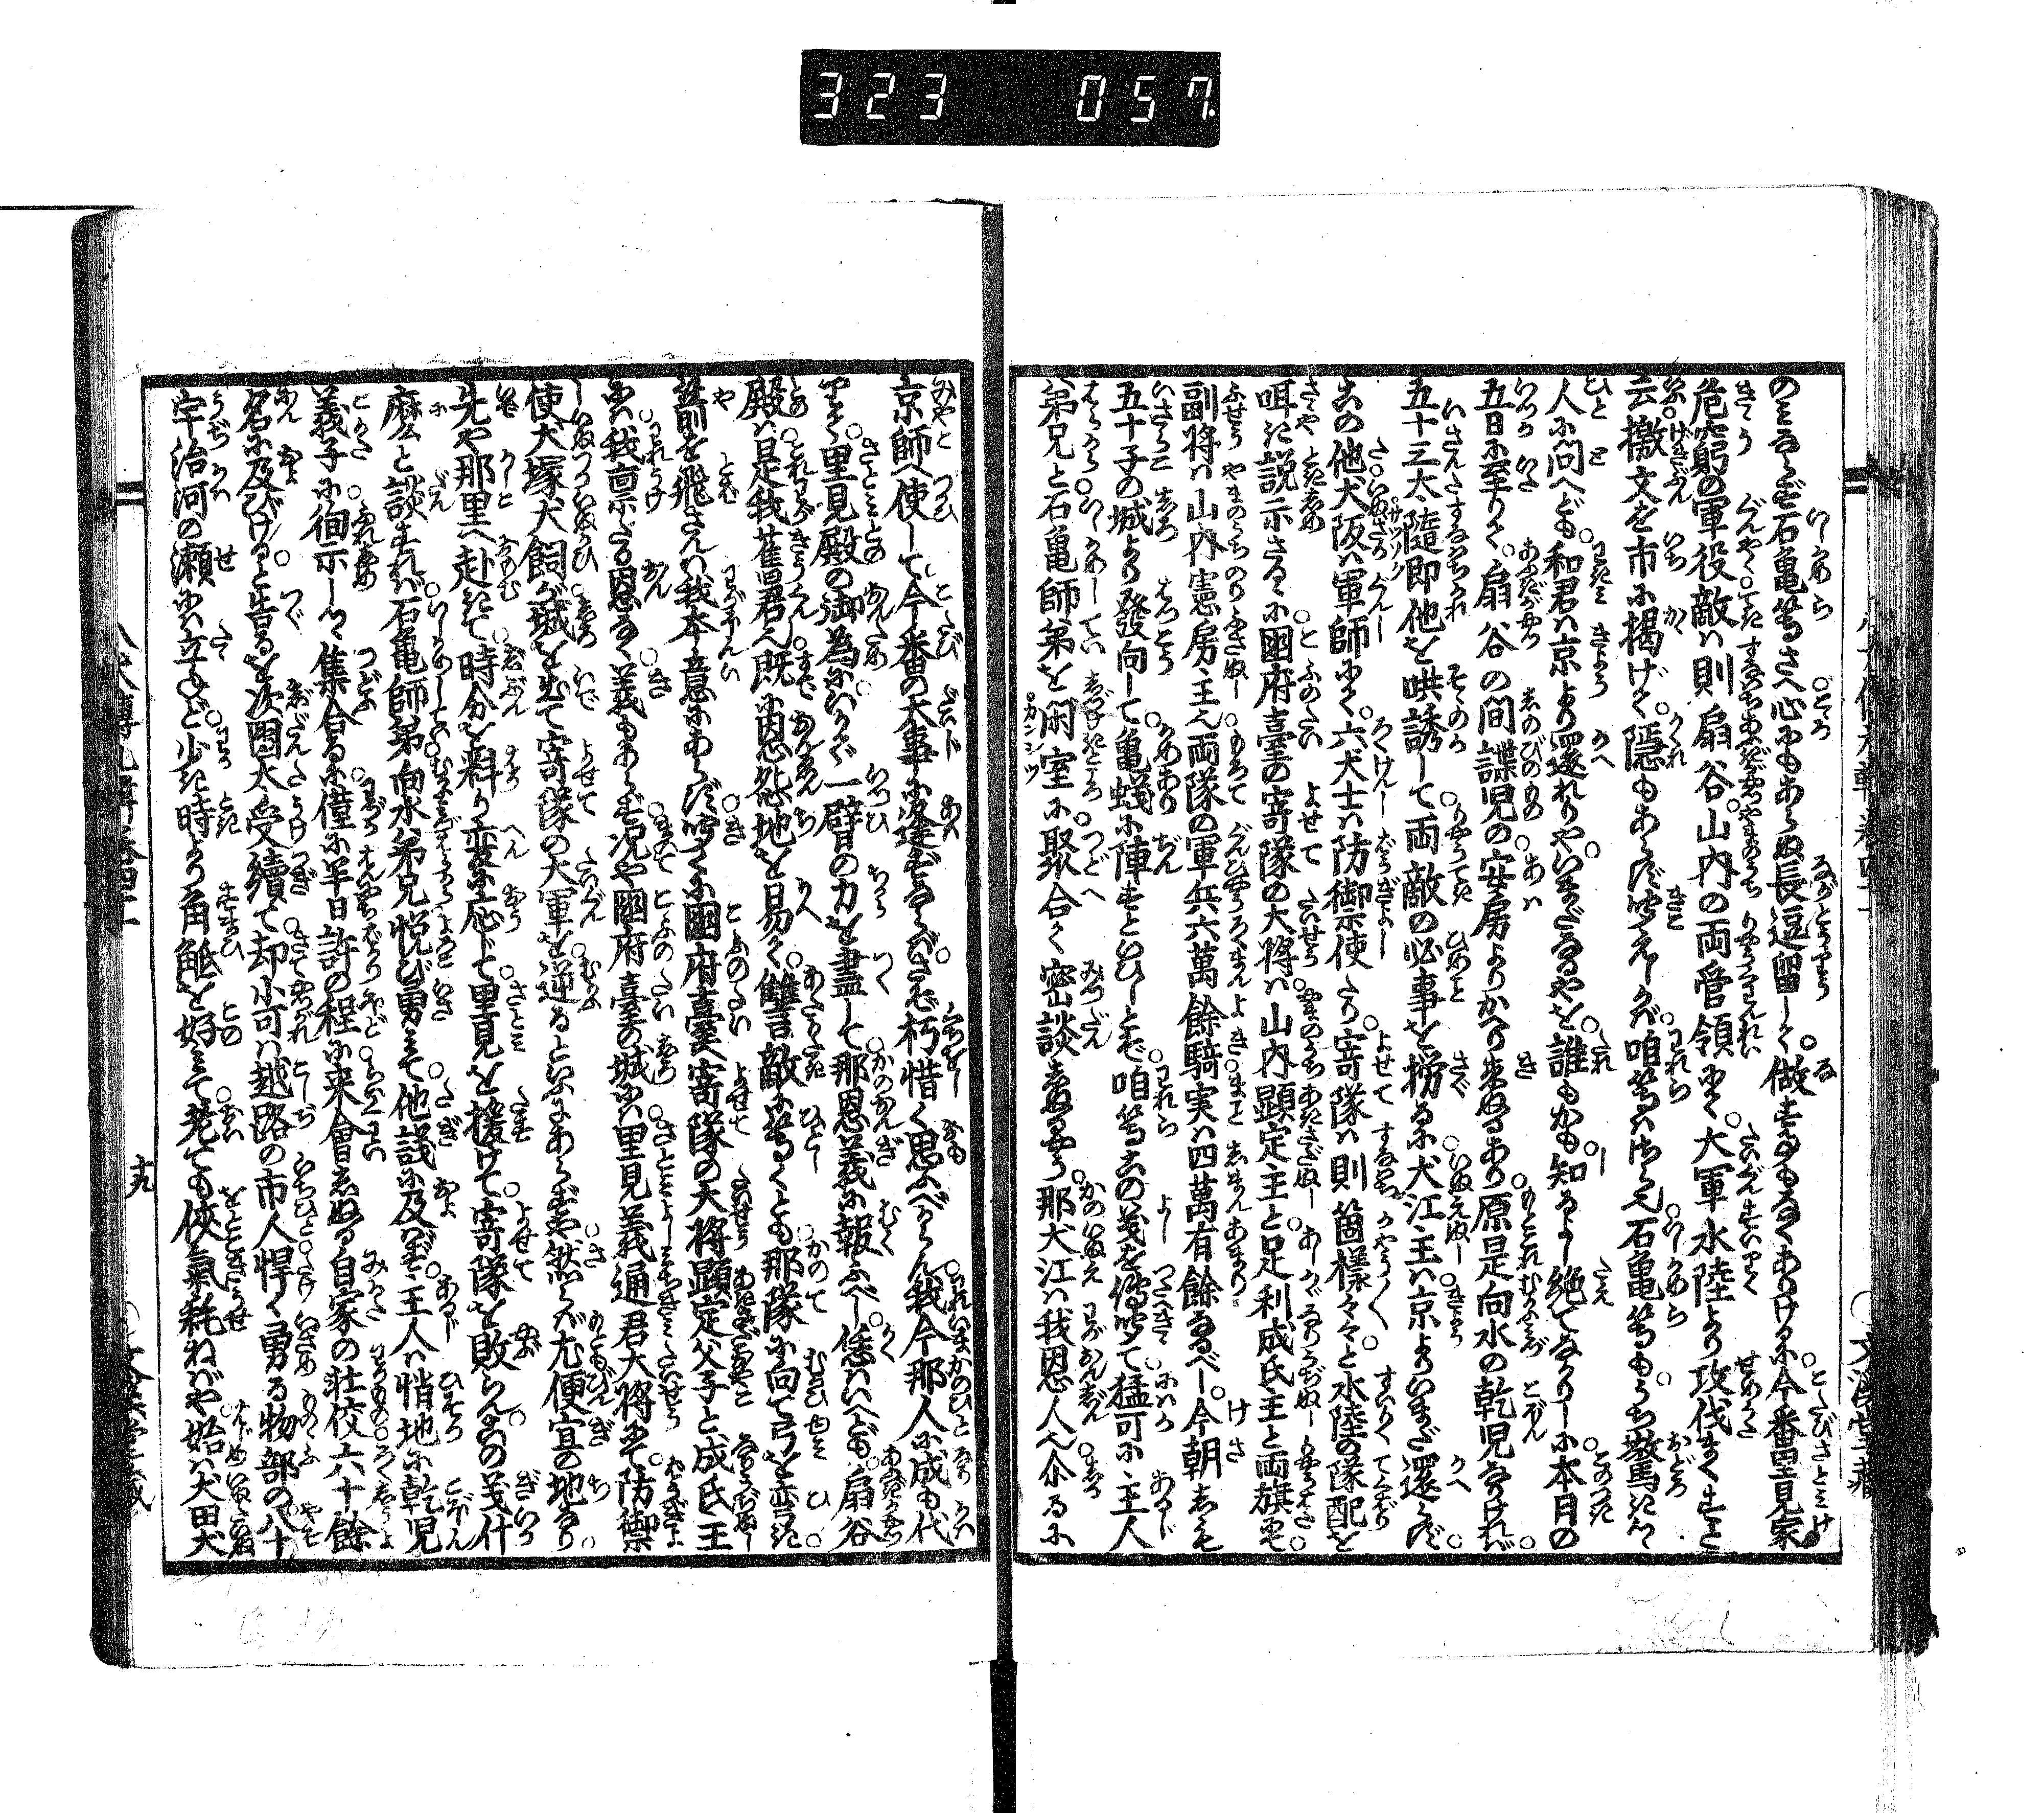 323 057
のみならず石亀等さへ心にもあらぬ長逗留して做すよしもなくありけるに今番里見家
危窮の軍役敵は則扇谷山内の両管領にて大軍水陸より攻伐まくすと
云檄文を市に掲げて隠もあらず聞えしかば咱等はさら也石亀等もうち驚きつつ
人に問へども和君は京より還れりやいまだなるやを誰もかも知るよし絶てなかりしに本月の
五日に至りて扇谷の間諜児の安房よりかへり来ぬるあり原是向水の乾児なければ
五十三太隨即他を哄誘して両敵の必事を撈るに犬江主は京よりいまだ還らず
その他犬阪は軍師にて六犬士は防禦使たり寄隊は則箇樣々々と水陸の隊配を
咡き説示さるるに國府臺の寄隊の大将は山内顕定主と足利成氏主と両旗にて
副将は山内憲房主也両隊の軍兵六萬餘騎実は四萬有餘なるべし今朝しも
五十子の城より發向して亀蟻に陣すといひしとぞ咱等その義を傳聞て猛可に主人
弟兄と石亀師弟を閑室に聚合て密談しぬるやう那犬江は我恩人也介るに
京師へ使して今番の大事に逢ずならばさぞ朽惜く思ふべからん我今那人に成も代
りて里見殿の御為にいかで一臂の力を盡して那恩義に報ふべし恁はいへども扇谷
殿は是我舊君也既に恩怨地を易て讐敵に等くとも那隊に向て弓を彎き
箭を飛さんは我本意にあらず聞くに國府臺へ寄隊の大将顕定父子と成氏主
には我禀ざる恩なく義もあらず況や國府臺の城には里見義通君大将にて防禦
使犬塚犬飼が城を出て寄隊の大軍を逆るといふにあらずや然らば尤便宜の地なり
先や那里へ赴きて時分を料り変に応じて里見を援けて寄隊を敗らんこの義什
麼と談ずれば石亀師弟向水弟兄悦び勇みて他議に及ばず主人は悄地に乾児
義子に徇示しつつ集合るに僅に半日許の程に来會しぬる自家の壮佼六十餘
名に及びけると告るを次團太受續て却小可は越路の市人悍く勇る物部の八十
宇治河の瀬には立ねど少き時より角觝を好みて老ても俠氣耗ねばや始は犬田犬
十九